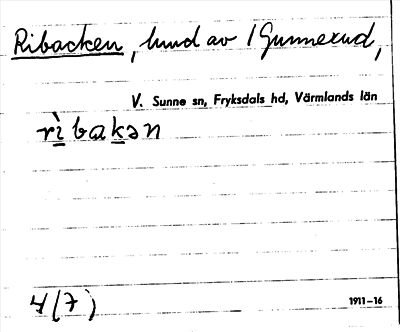 Ribacken, hund av 1 Gunnerud,
V. Sunne sn, Fryksdals hd, Värmlands län
rìbakən
4(7)
1911–16